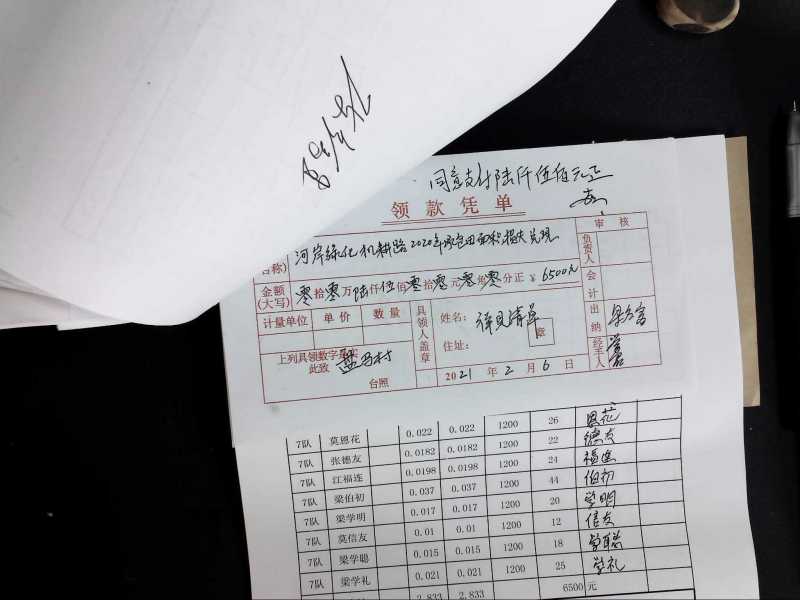 同意支付陆仟伍佰元正
领款凭单
河岸绿化机耕路2020年承包田面积损失兑现
名称)
审核
负责人
会计
出纳
经手人
金额(大写) 零拾零万陆仟伍佰零拾零元零角零分正 ¥6500元
计量单位 单价 数量
具领人盖章
姓名:
章
住址:
上列具领数字是实
此致
台照
2021年2月6日
7队 莫恩花 0.022 0.022 1200 26 恩花
7队 张德友 0.0182 0.0182 1200 22 德友
7队 江福连 0.0198 0.0198 1200 24 福连
7队 梁伯初 0.037 0.037 1200 44 伯初
7队 梁学明 0.017 0.017 1200 20 学明
7队 莫信友 0.01 0.01 1200 12 信友
7队 梁学聪 0.015 0.015 1200 18 学聪
7队 梁学礼 0.021 0.021 1200 25 学礼
2.833 2.833 6500 元